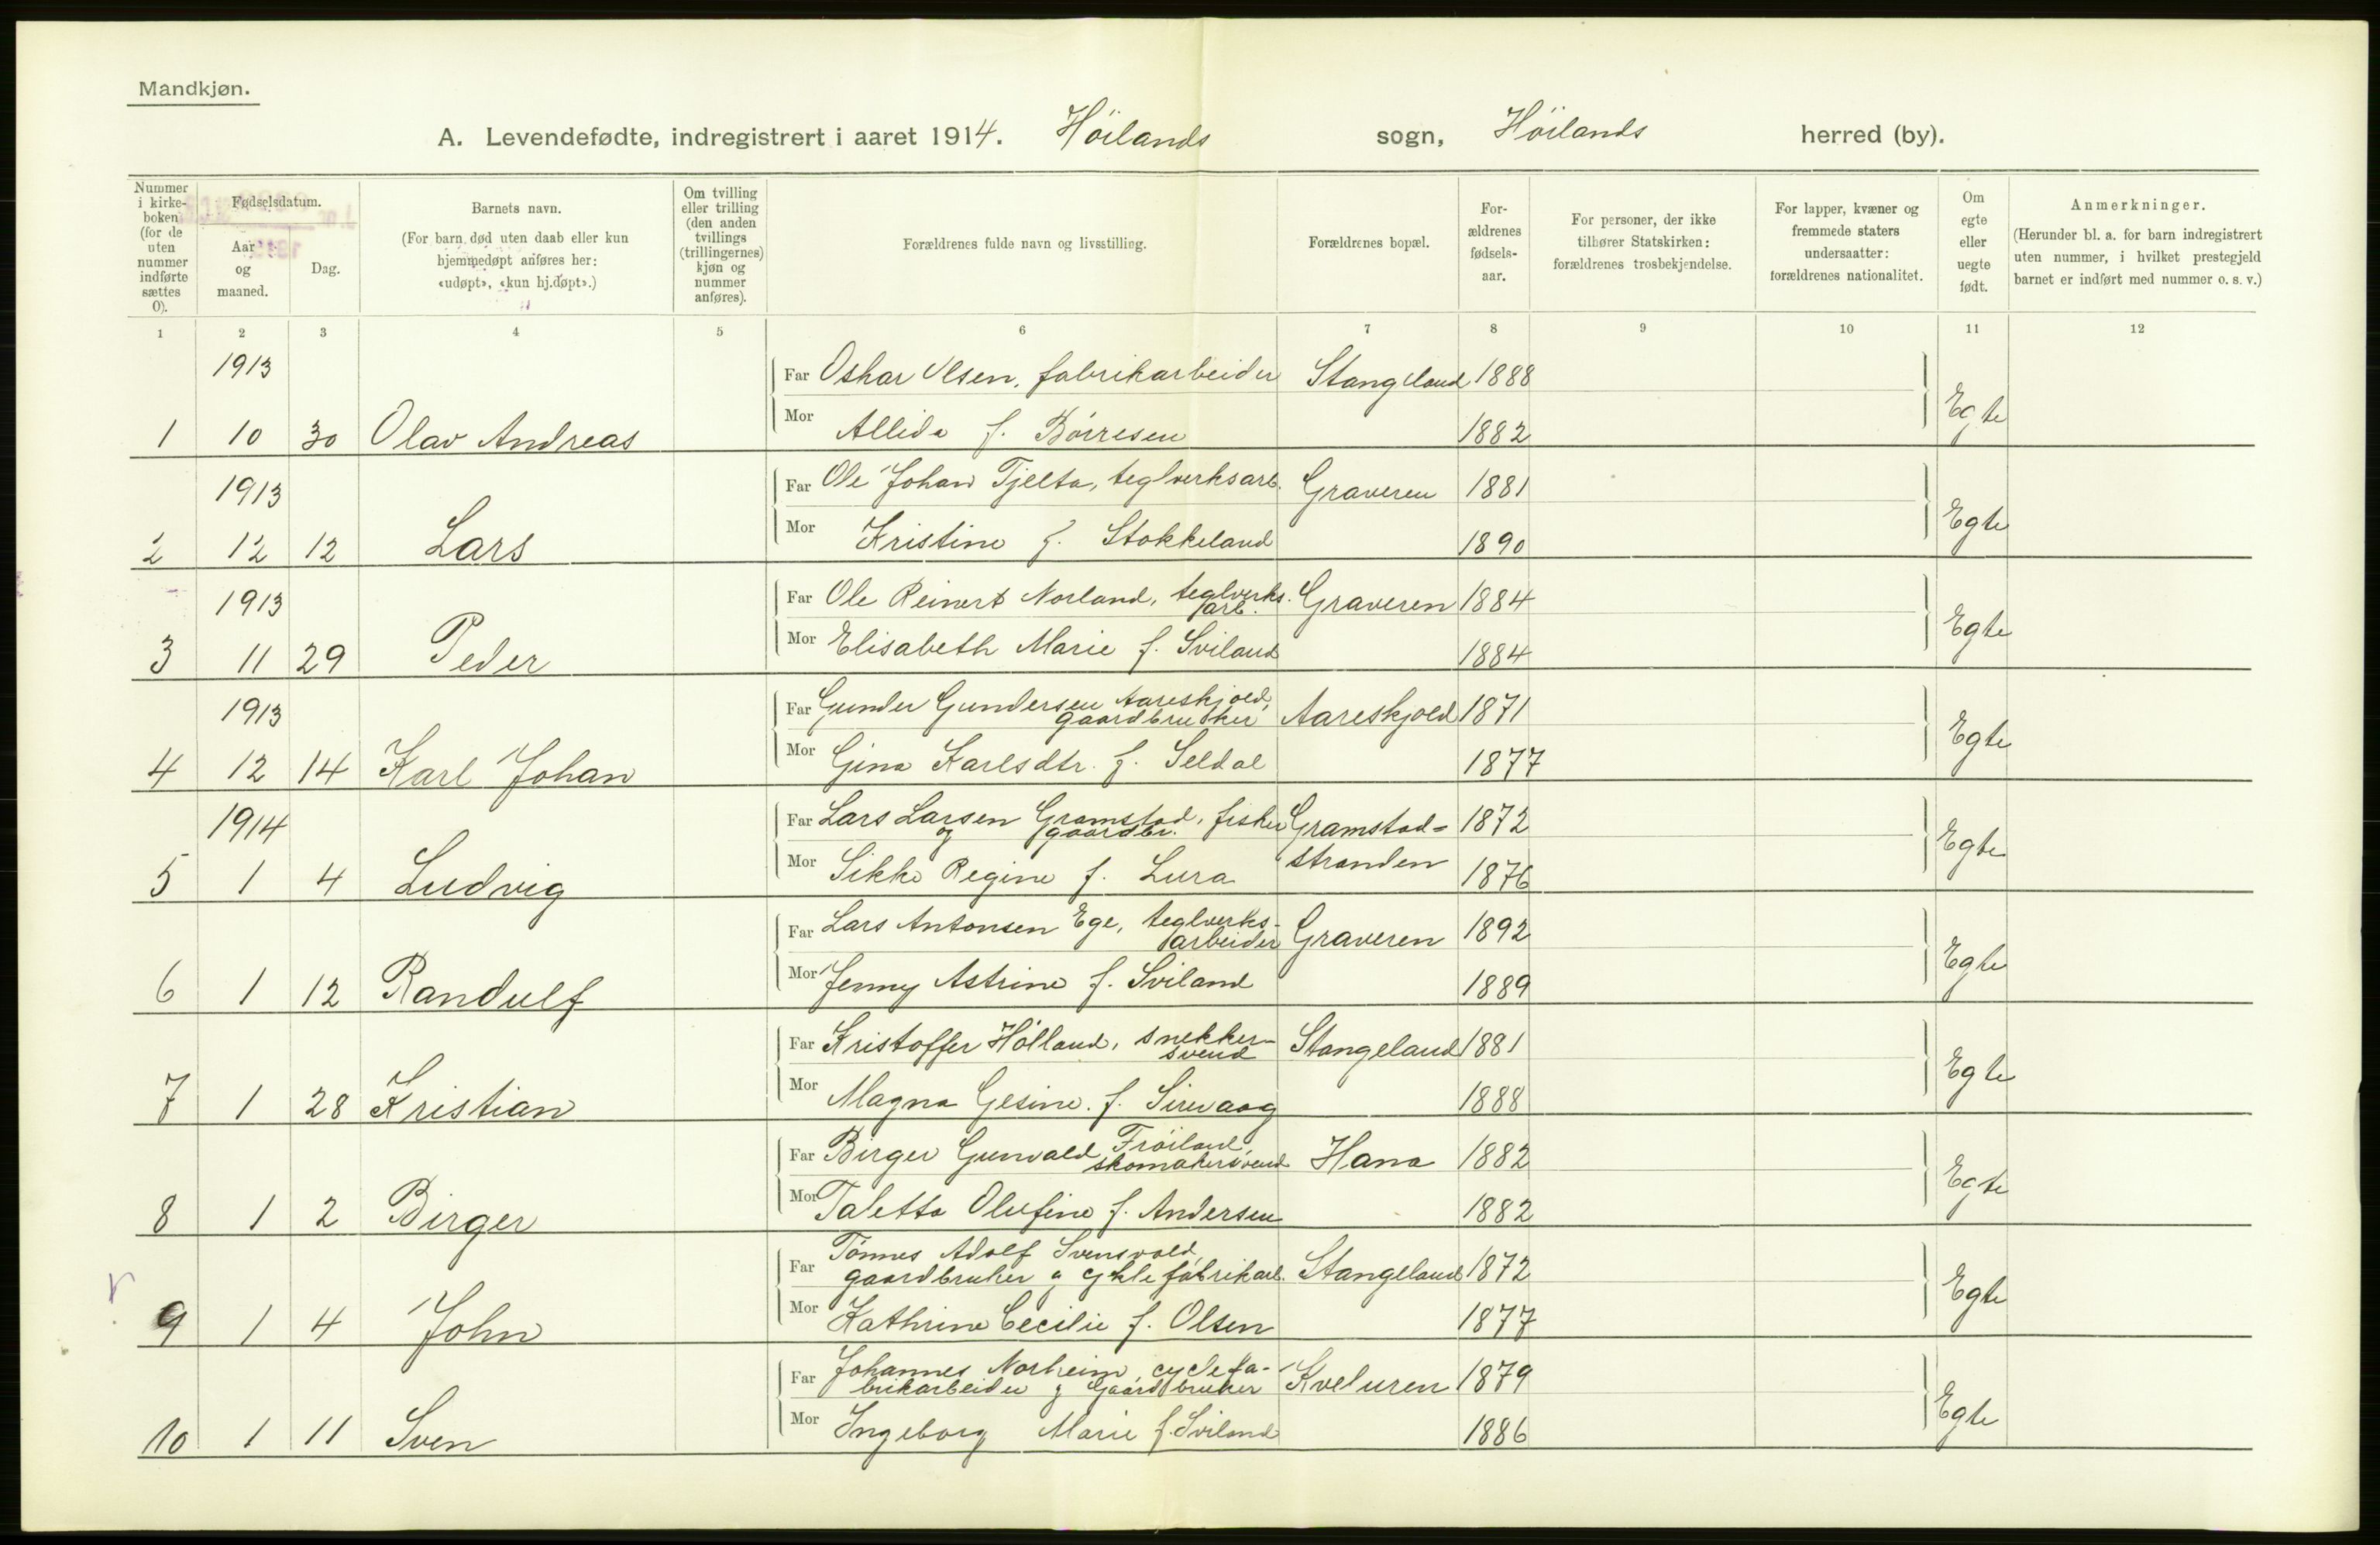 Mandkjøn.
A. Levendefødte, indregistrert i aaret 1914. Höilands sogn, Höilands herred (by).
Nummer i kirkeboken (for de uten nummer indførte sættes 0).
Fødselsdatum.
Aar og maaned.
Dag.
Barnets navn.
(For barn død uten daab eller kun hjemmedøpt anføres her: «udøpt», «kun hj.døpt».)
Om tvilling eller trilling (den anden tvillings (trillingernes) kjøn og nummer anføres).
Forældrenes fulde navn og livsstilling.
Forældrenes bopæl.
For-ældrenes fødsels-aar.
For personer, der ikke tilhører Statskirken: forældrenes trosbekjendelse.
For lapper, kvæner og fremmede staters undersaatter: forældrenes nationalitet.
Om egte eller uegte født.
Anmerkninger.
(Herunder bl. a. for barn indregistrert uten nummer, i hvilket prestegjeld barnet er indført med nummer o. s. v.)
1 2 3 4 5 6 7 8 9 10 11 12
1913 Far Oskar Olsen, fabrikarbeider Stangeland 1888
1 10 30 Olav Andreas Mor Allida f. Börresen 1882 Egte
1913 Far Ole Johan Tjelta, teglverksarb. Graveren 1881
2 12 12 Lars Mor Kristine f. Stokkeland 1890 Egte
1913 Far Ole Reinert Norland, teglverks. arb. Graveren 1884
3 11 29 Peder Mor Elisabeth Marie f. Sviland 1884 Egte
1913 Far Gunder Gundersen Aareskjold, gaardbruker Aareskjold 1871
4 12 14 Karl Johan Mor Gina Karlsdtr. f. Seldal 1877 Egte
1914 Far Lars Larsen Gramstad, fisker og gaardbr. Gramstad- 1872
5 1 4 Ludvig Mor Sikke Regine f. Lura stranden 1876 Egte
Far Lars Antonsen Ege, teglverks-arbeider Graveren 1892
6 1 12 Randulf Mor Jenny Astrine f. Sviland 1889 Egte
Far Kristoffer Hölland, snekker-svend Stangeland 1881
7 1 28 Kristian Mor Magna Gesine f. Sirevaag 1888 Egte
Far Birger Gunvald Fröiland, skomakersvend Hana 1882
8 1 2 Birger Mor Taletta Olufine f. Andersen 1882 Egte
Far Tönnes Adolf Svensvold, gaardbruker og cyklefabrikarb. Stangeland 1872
9 1 4 John Mor Kathrine Cecilie f. Olsen 1877 Egte
Far Johannes Norheim, cyclefa-brikarbeider og Gaardbruker Kveluren 1879
10 1 11 Sven Mor Ingeborg Marie f. Sviland 1886 Egte